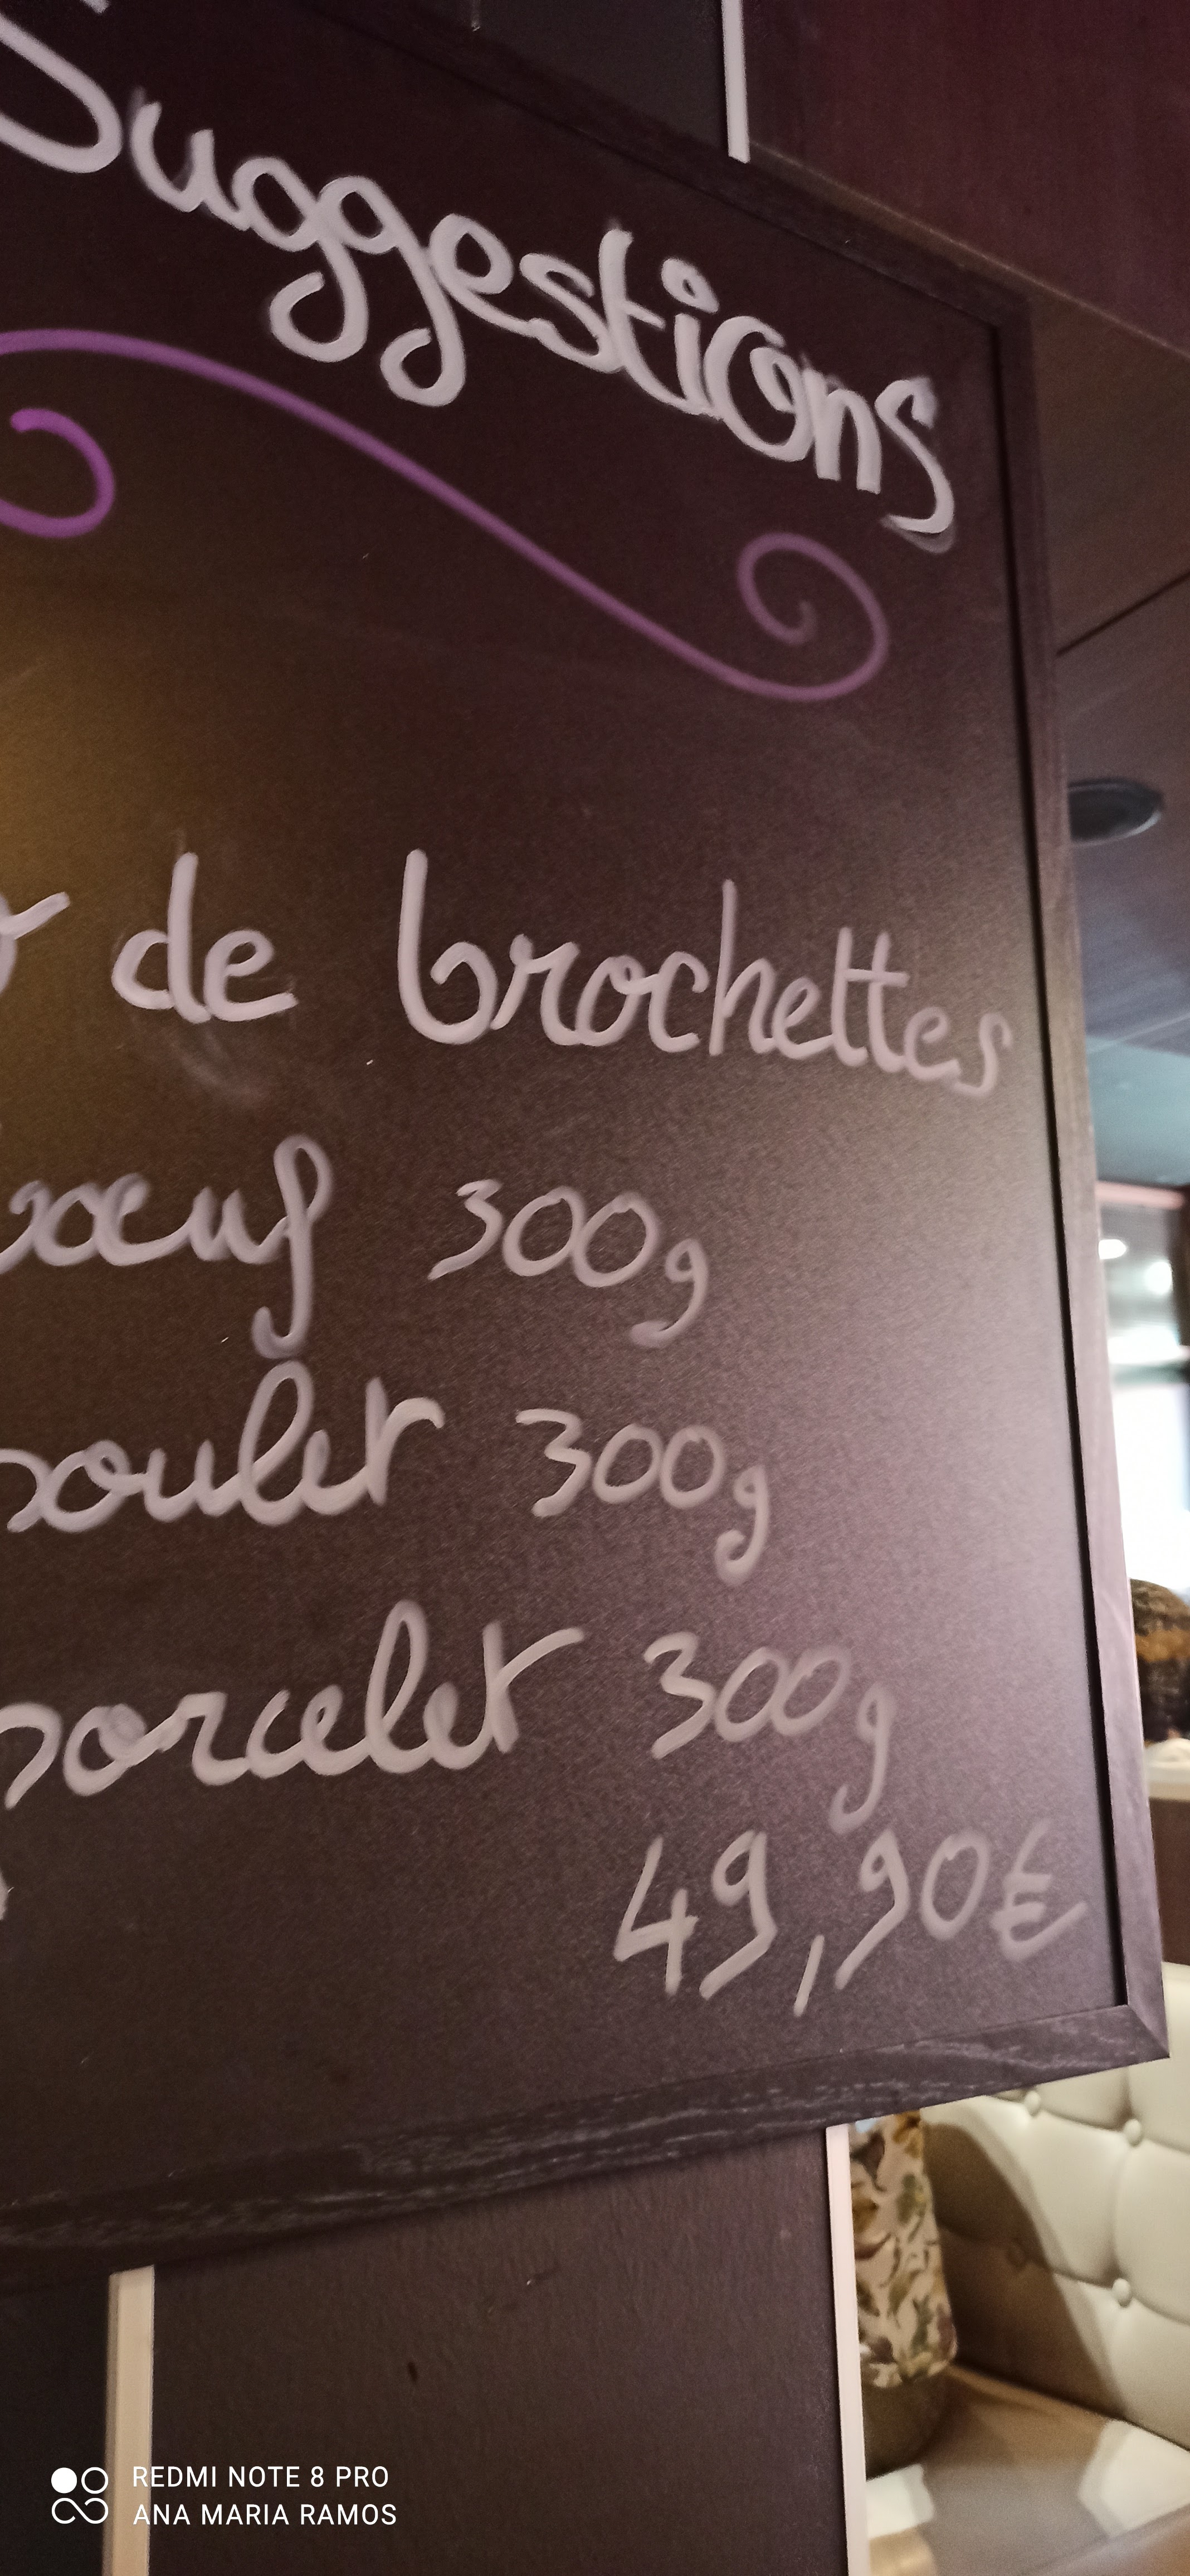 Suggestions
de brochettes
boeuf 300g
poulet 300g
porcelet 300g
49,90€
REDMI NOTE 8 PRO
ANA MARIA RAMOS